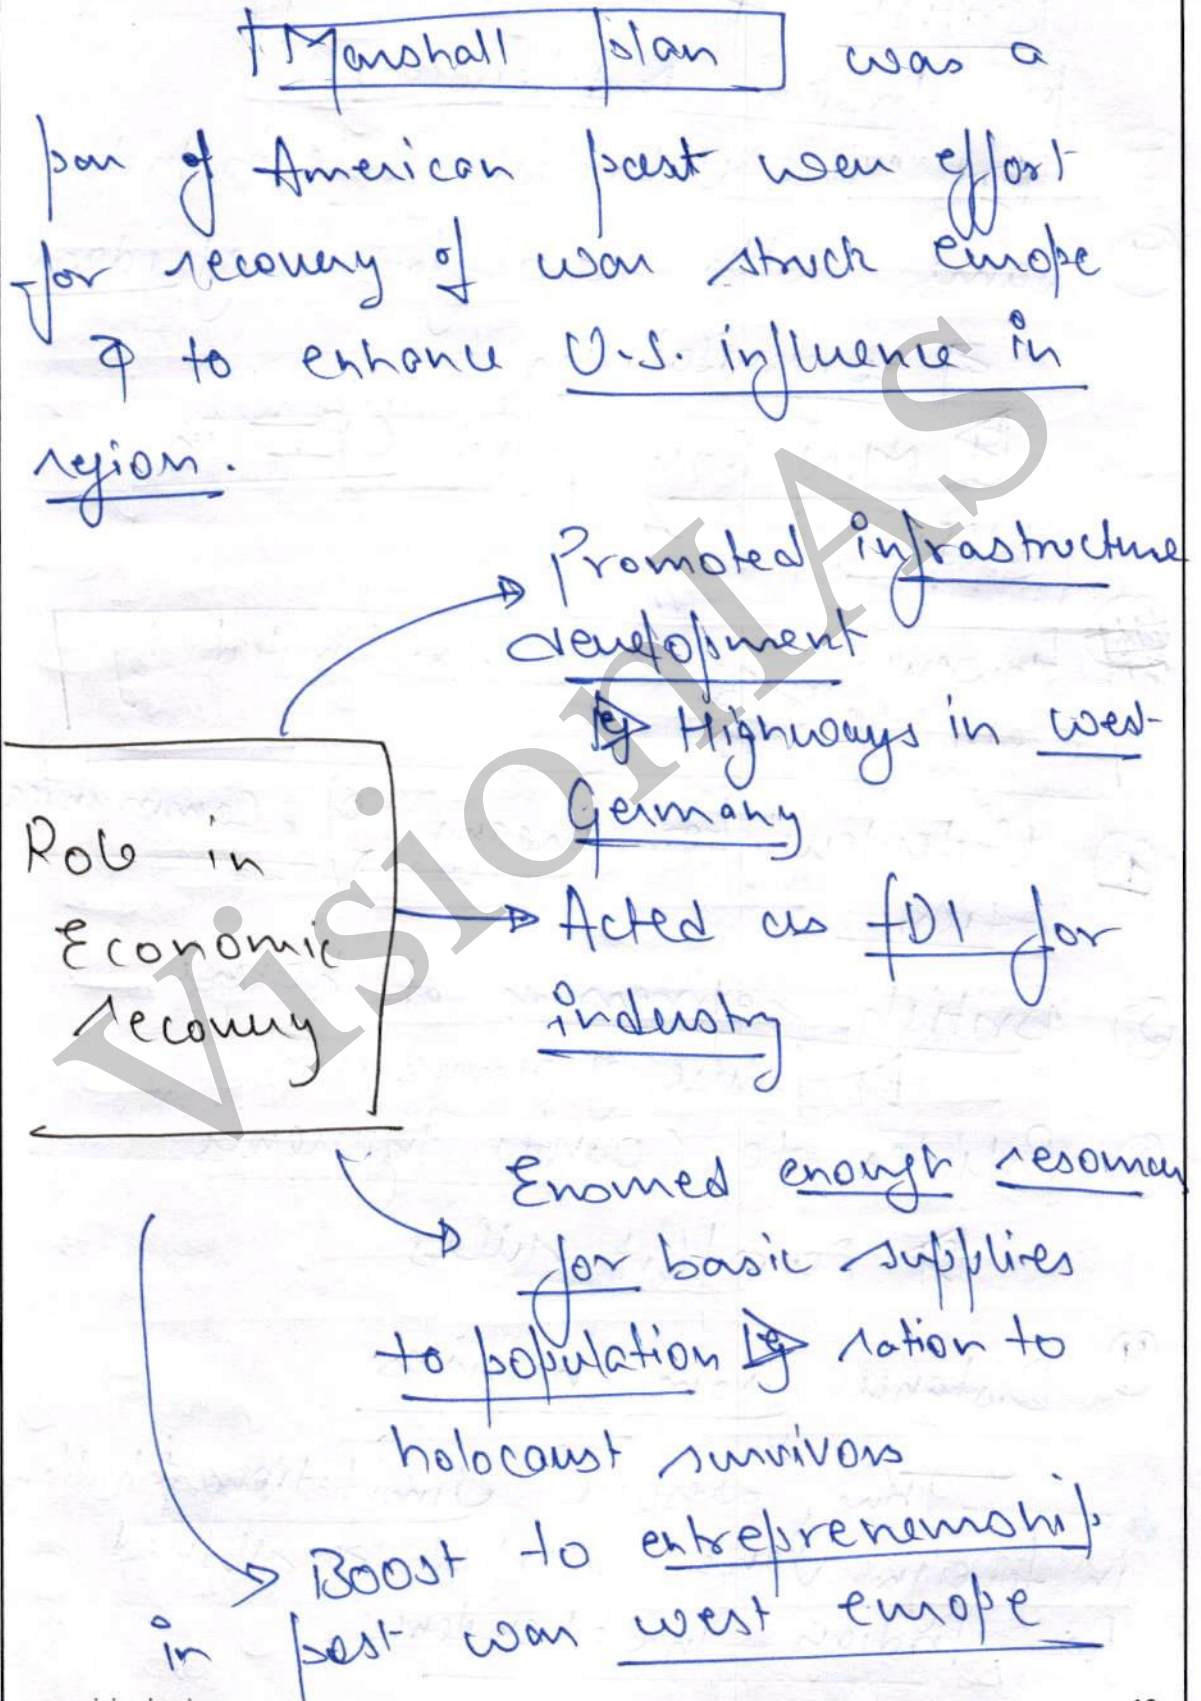 Marshall plan was a
par of American post war effort
for recovery of war struck Europe
& to enhance U.S. influence in
region.
Promoted infrastructure
development
eg Highways in west
Germany
Role in
Economic
recovery
Acted as FDI for
industry
Ensured enough resources
for basic supplies
to population eg ration to
holocaust survivors
Boost to entrepreneurship
in post war west europe
VisionIAS